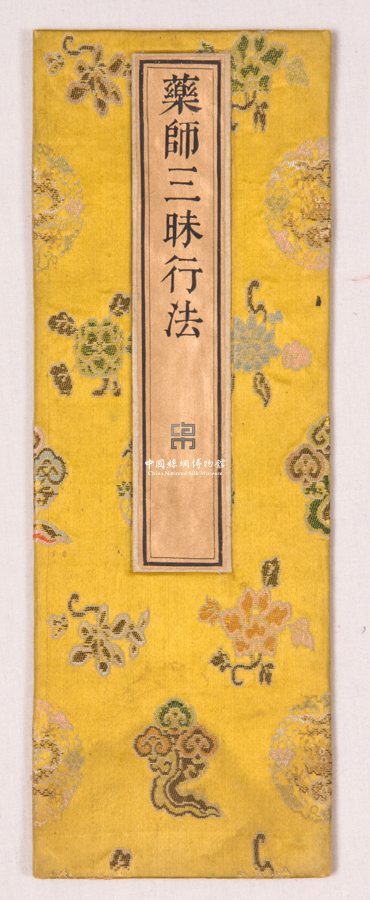 藥師三昧行法
中國絲綢博物館
China National Silk Museum